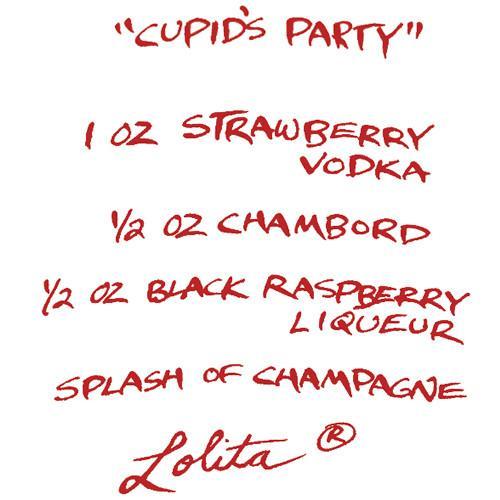 "CUPID'S PARTY"
1 OZ STRAWBERRY
VODKA
1/2 OZ CHAMBORD
1/2 OZ BLACK RASPBERRY
LIQUEUR
SPLASH OF CHAMPAGNE
Lolita ®